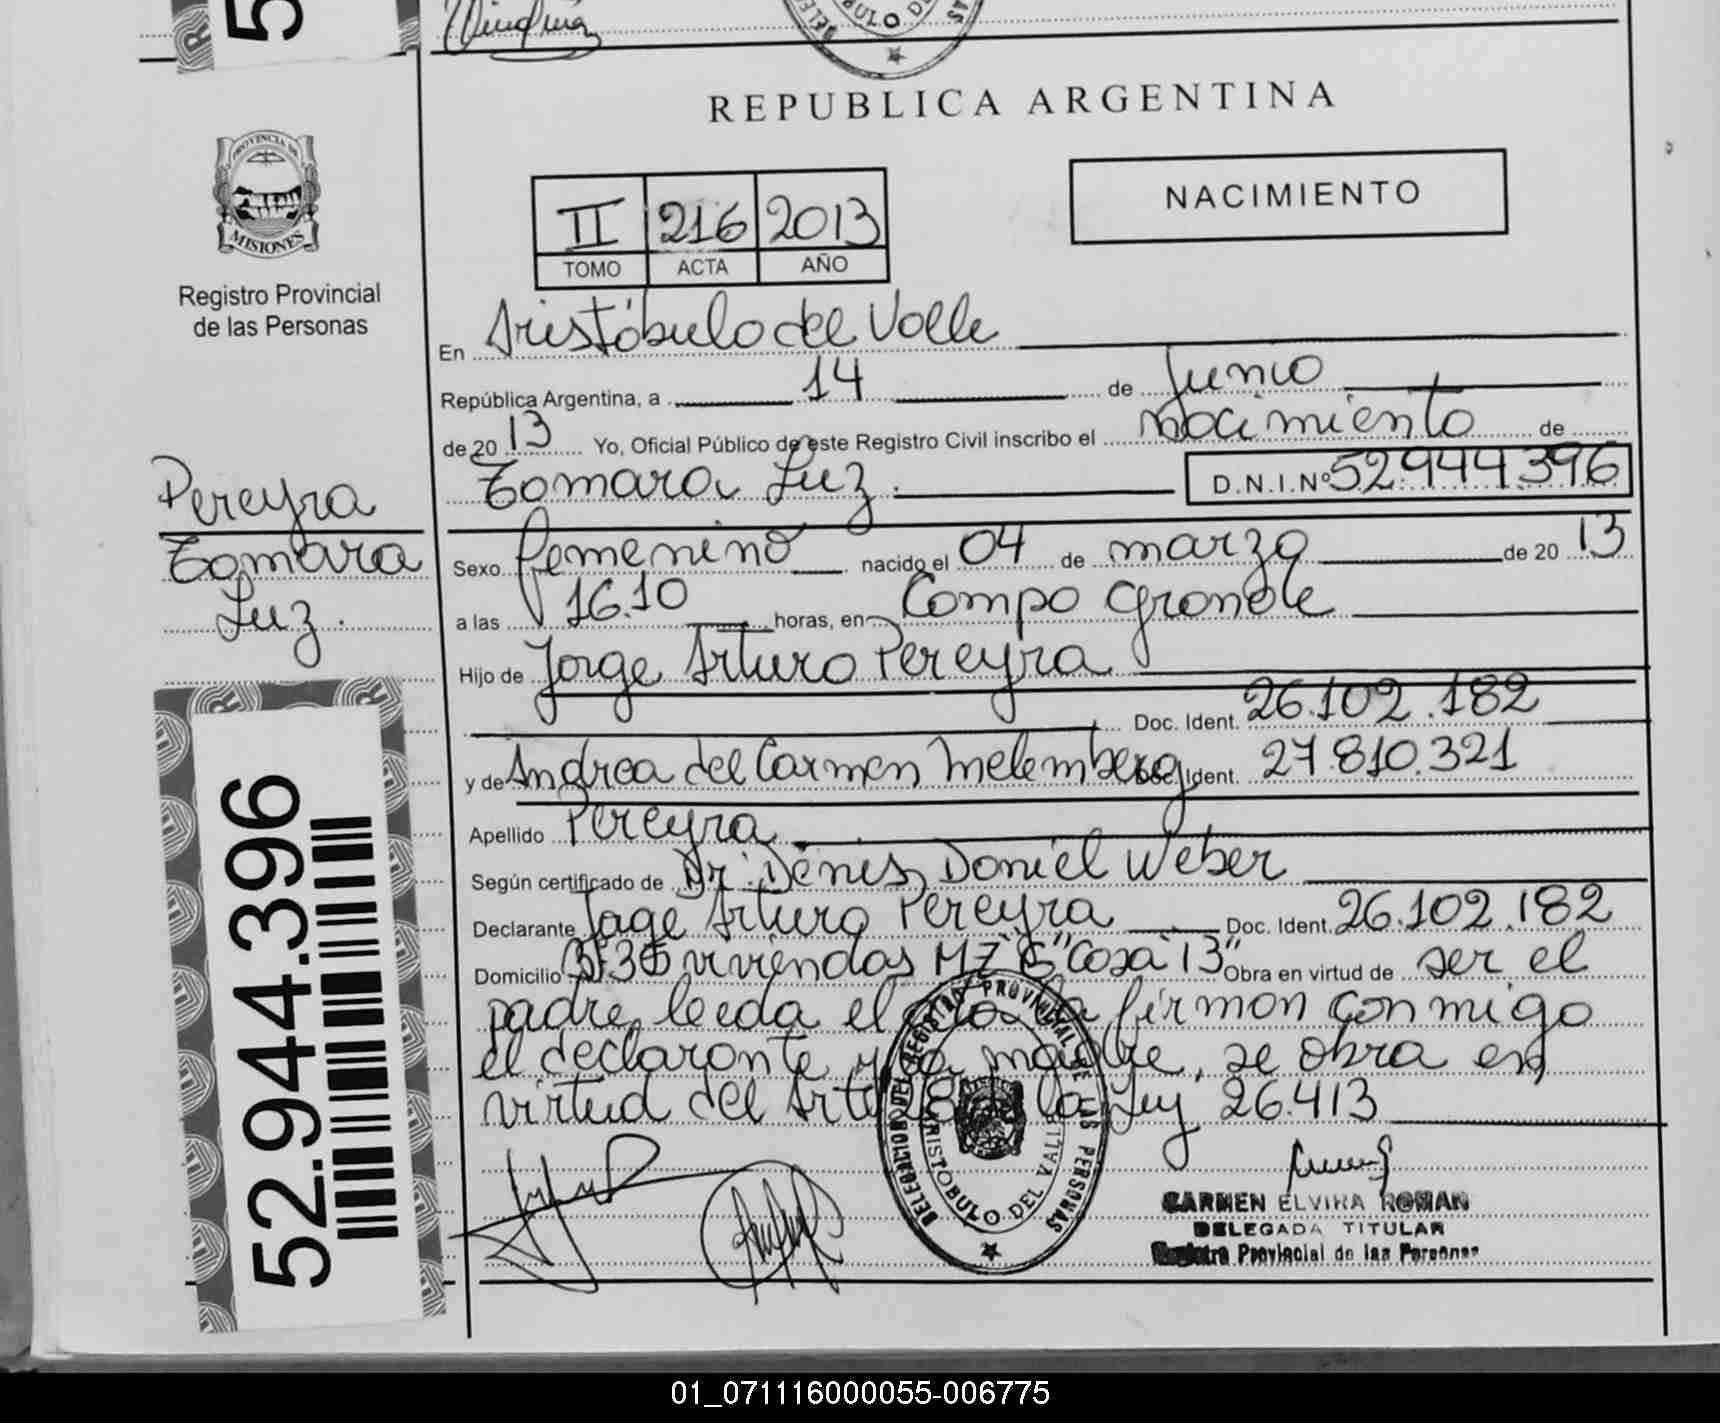 REPUBLICA ARGENTINA
PROVINCIA DE
MISIONES
Registro Provincial
de las Personas
NACIMIENTO
II 216 2013
TOMO ACTA AÑO
En Aristóbulo del Valle
República Argentina, a 14 de Junio
de 2013 Yo, Oficial Público de este Registro Civil inscribo el nacimiento de
Tamara Luz. D.N.I.Nº 52.944.396
Pereyra
Tamara
Luz.
Sexo femenino nacido el 04 de marzo de 2013
a las 16.10 horas, en Campo Grande
Hijo de Jorge Arturo Pereyra
Doc. Ident. 26.102.182
y de Andrea del Carmen Melemberg Doc. Ident. 27.810.321
Apellido Pereyra
Según certificado de Dr. Denis Daniel Weber
Declarante Jorge Arturo Pereyra Doc. Ident. 26.102.182
Domicilio viviendas MZ Casa "13" Obra en virtud de ser el
padre, leida el acta la firman conmigo
el declarante y la madre, se obra en
virtud del Art. 28 de la Ley 26.413
52.944.396
DELEGACION DEL REGISTRO PROVINCIAL DE LAS PERSONAS
ARISTOBULO DEL VALLE
CARMEN ELVIRA ROMAN
DELEGADA TITULAR
Registro Provincial de las Personas
01_071116000055-006775